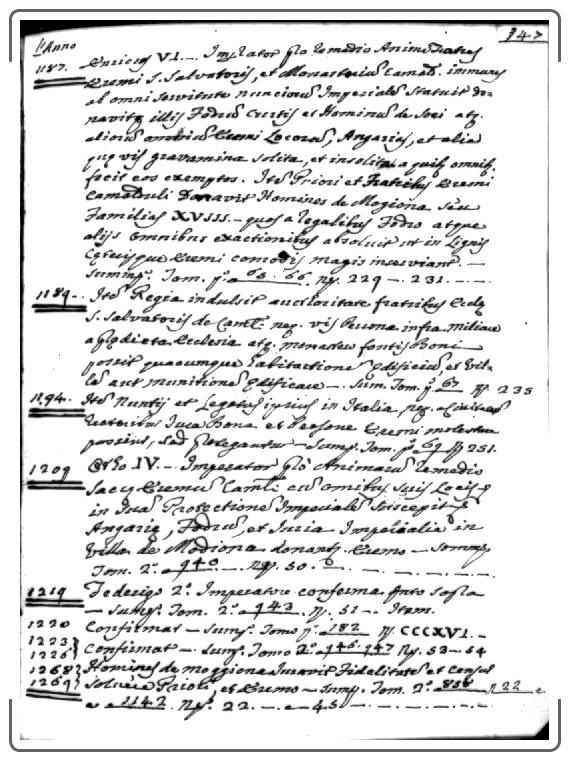 347
Anno
1187. Enricus VI. Imperator pro remedio Animæ Fratres
Eremi S. Salvatoris, et Monasterium Camald. immunes
ab omni servitute nunciorum Imperialium Statuit do-
navitq illis Fodrum Curtis et Hominum de Soci atq.
aliorum Eremi Locorum, Angarias, et alia
quævis gravamina solita, et insolita, a quib. omnib.
facit eos exemptos. Item Priori et Fratribus Eremi
Camalduli Donavit Homines de Mogiona seu
Familias XVIII. quos a legalibus Fodro atque
alijs omnibus exactionibus absoluit ut in Lignis
Eremi comodis magis inserviant.
Summ. Tom. p.º 65. 66 Nº. 229 - 231.
1189. Item Regia indulsit auctoritate fratribus Eccl.
S. Salvatoris de Camal. neq. vis Persona infra miliare
a predicta Ecclesia atq. monasterio fontis Boni
possit quacumque habitatione edificium, et Vil-
la aut munitione edificare - Sum. Tom. p.º 67 Nº 235
1194. Item Nuntij et Legatus ipsius in Italia, neq. Civitates
bona et Persone Eremi molestare
possint, sed protegantur - Sum. Tom. pº 69 Nº 251.
1209 Otho IV. - Imperator pro Animarum remedio
Sacrum Eremum Camal. cum omnibus suis Locis
in sua Protectione Imperiale Suscepit
Angarie, Fodrum, et Iuria Imperialia in
Villa de Modiona donant. Eremo - Somm.
Tom. 2.º 940 Nº. 50.
1219 Federigo 2.º Imperatore conferma
- Sum. Tom. 2.º 943 Nº. 51 - Item.
1220 Confirmat - Sum. Tomo pº. 182 Nº CCCXVI. -
1223 } Confirmat - Sum. Tomo 2.º 946. 947 Nº. 53 - 54
1226 }
1268 } Homines de moggiona Iuravit Fidelitate et Censu
1269 } Solvere Priori, et Eremo - Sum. Tom. 2.º 838 Nº 22 e
e 1142 Nº. 22. - e - 45